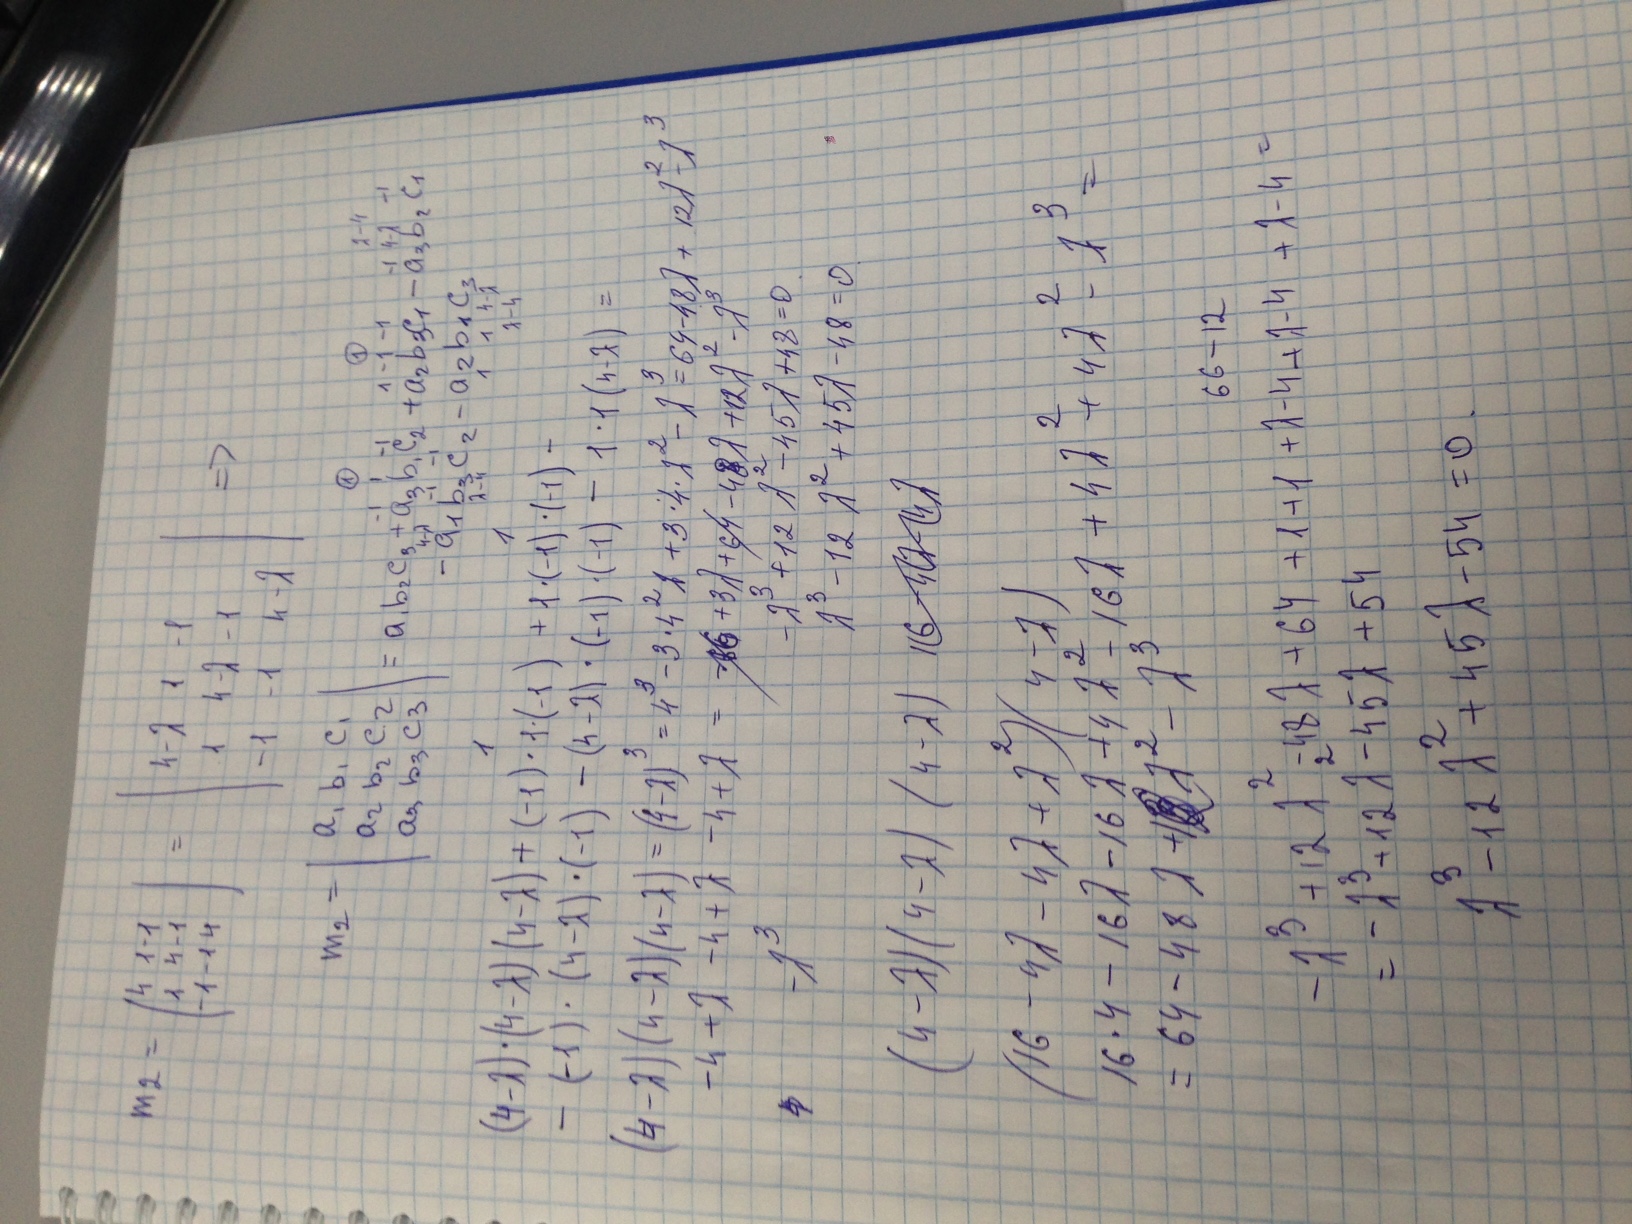 m₂ = | 4 1 -1 | = | 4-λ 1 -1 | =>
| 1 4 -1 | | 1 4-λ -1 |
| -1 -1 4 | | -1 -1 4-λ |
① ① λ-4
-1 1 -1 1 -1 -1 -1 4-λ -1
m₂ = | a₁ b₁ c₁ | = a₁b₂c₃ + a₃b₁c₂ + a₂b₃c₁ - a₃b₂c₁
| a₂ b₂ c₂ |
| a₃ b₃ c₃ |
4-λ -1 -1
- a₁b₃c₂ - a₂b₁c₃
λ-4 1 1 4-λ
λ-4
1 1
(4-λ)·(4-λ)(4-λ) + (-1)·1·(-1) + 1·(-1)·(-1) -
- (-1)·(4-λ)·(-1) - (4-λ)·(-1)·(-1) - 1·1(4-λ) =
(4-λ)(4-λ)(4-λ) = (4-λ)³ = 4³ - 3·4²λ + 3·4·λ² - λ³ = 64-48λ + 12λ² - λ³
-4+λ -4+λ -4+λ = +3λ+64-48λ+12λ²-λ³
-λ³ -λ³+12λ²-45λ+48=0.
λ³-12λ²+45λ-48=0.
(4-λ)(4-λ)(4-λ) 16-4λ-4λ
(16-4λ-4λ+λ²)(4-λ)
16·4-16λ-16λ+4λ²-16λ+4λ²+4λ²-λ³ =
= 64-48λ+ λ²-λ³
66-12
-λ³+12λ²-48λ+64+1+1+λ-4+λ-4+λ-4 =
2
= -λ³+12λ-45λ+54
λ³-12λ²+45λ-54=0.